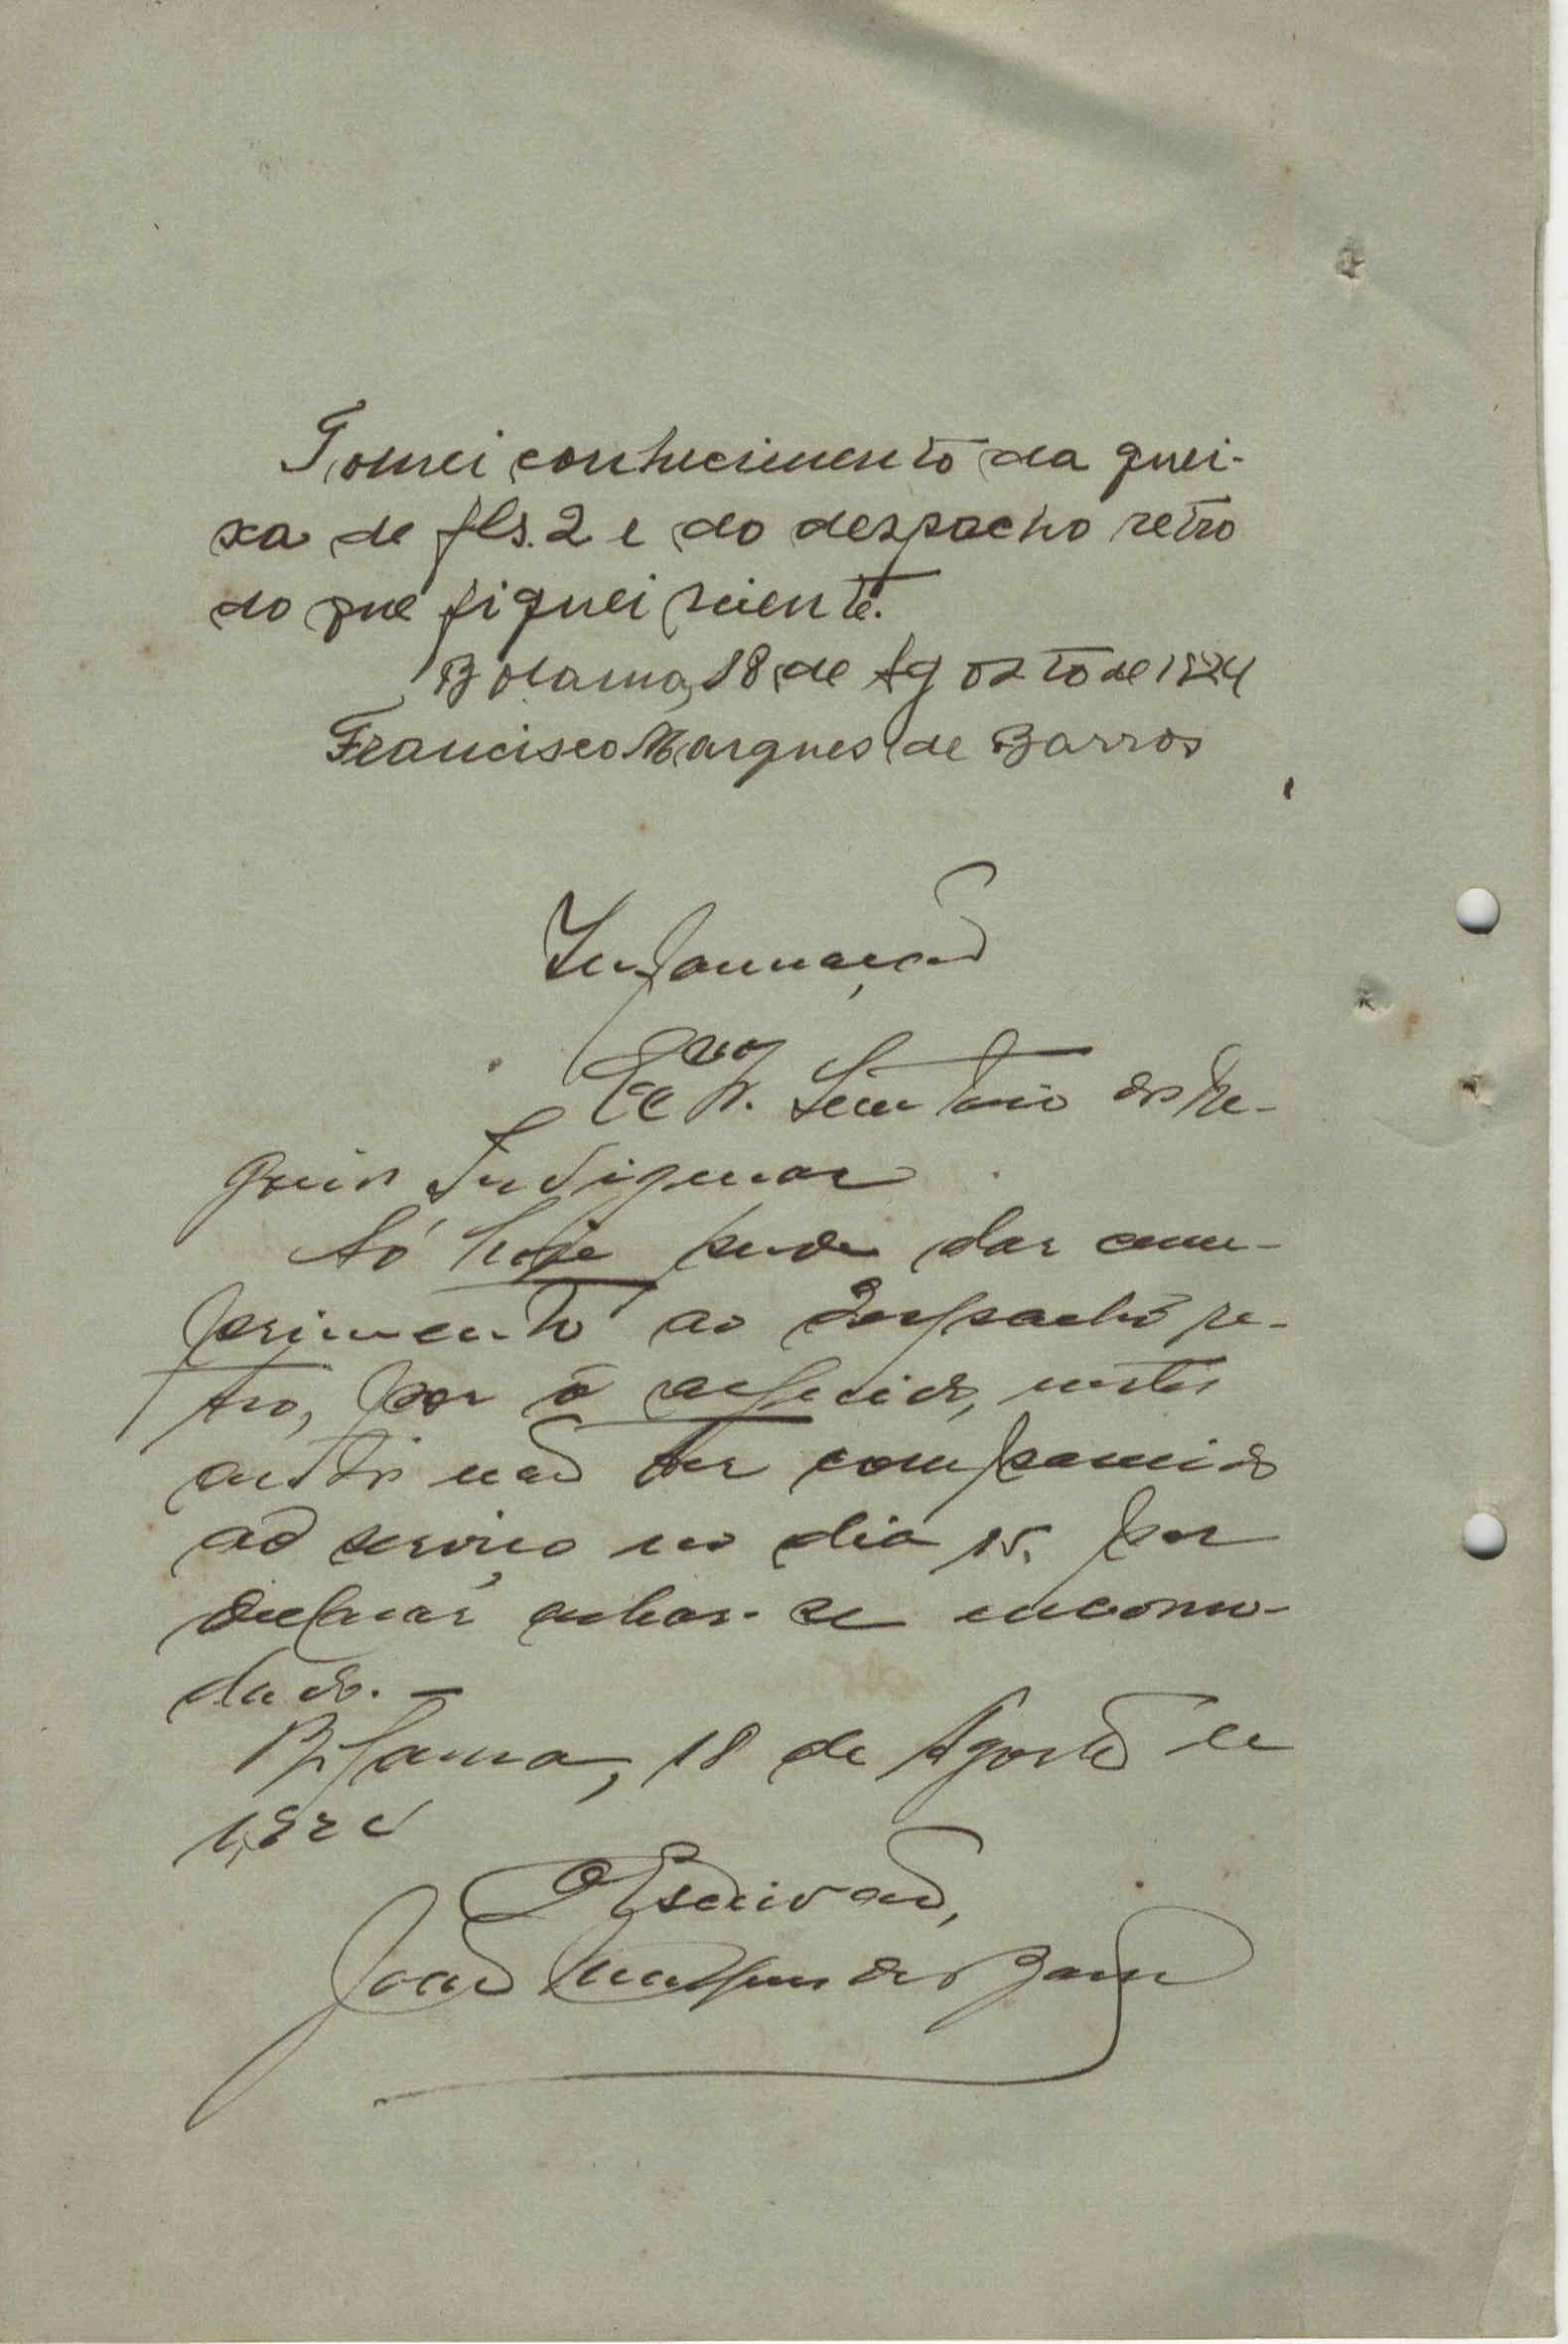 Tomei conhecimento da quei-
xa de fls. 2 e do despacho retro
do que fiquei sciente.
Bolama, 18 de Agosto de 1924
Francisco Marques de Barros
Informação
Exmo Sr. Secretario dos Ne-
gocios Indigenas
Só hoje pude dar cum-
primento ao despacho re-
tro, por o arguido, nestes
autos não ter comparecido
ao serviço no dia 15, por
declarar achar-se encomo-
dado. -
Bolama, 18 de Agosto de
1924
O Escrivão,
João